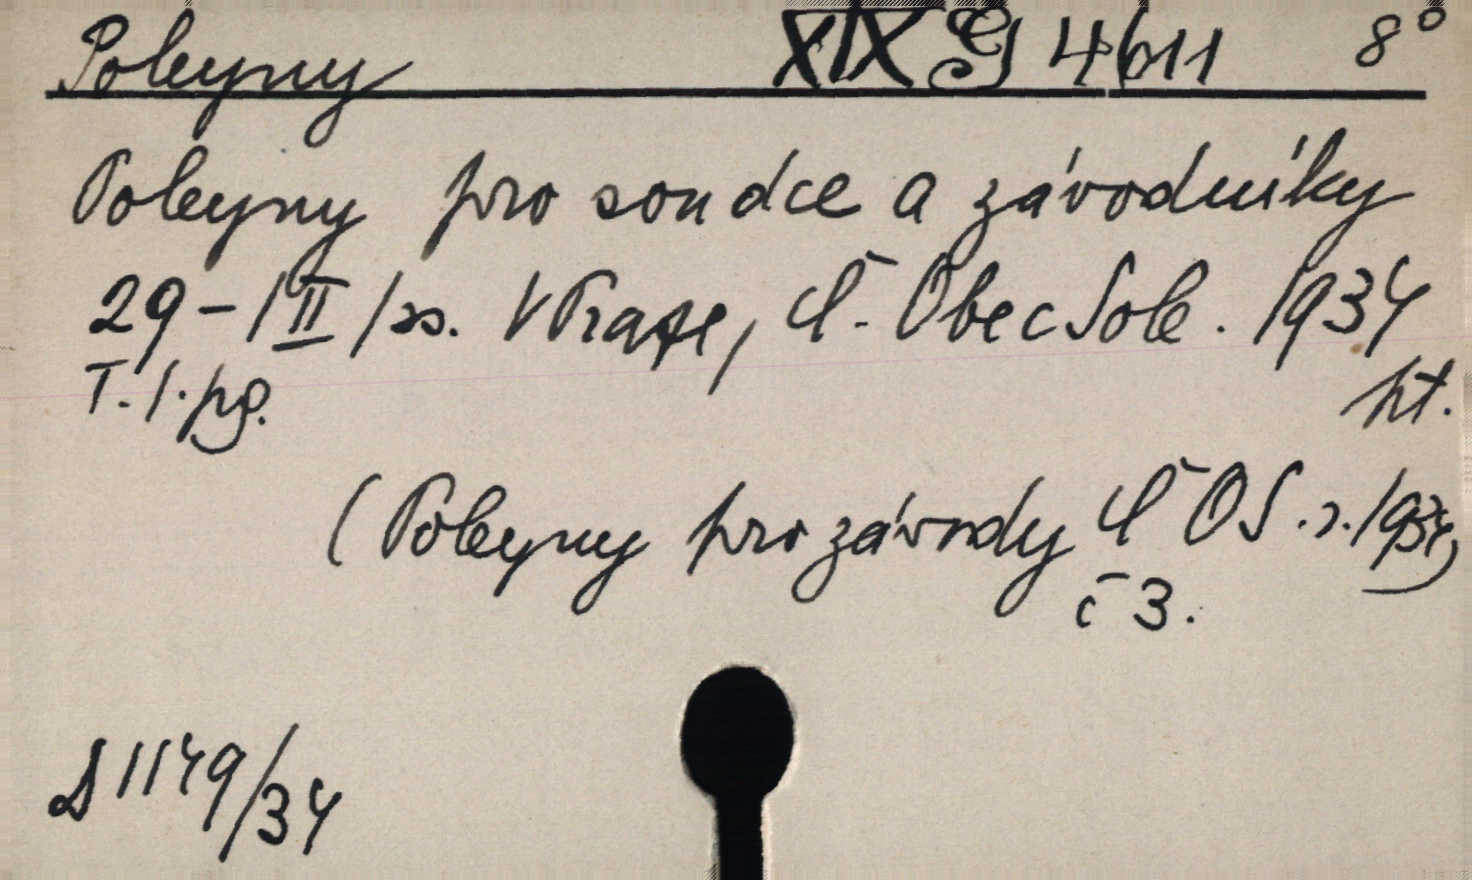 Pokyny XIX G 4611 8°
Pokyny pro soudce a závodníky
29-/II/ss. V Praze, Č. Obec Sok. 1934
T. 1. pg. 8t.
(Pokyny pro závody Č OS. r. 1934,
č 3.
D 1149/34